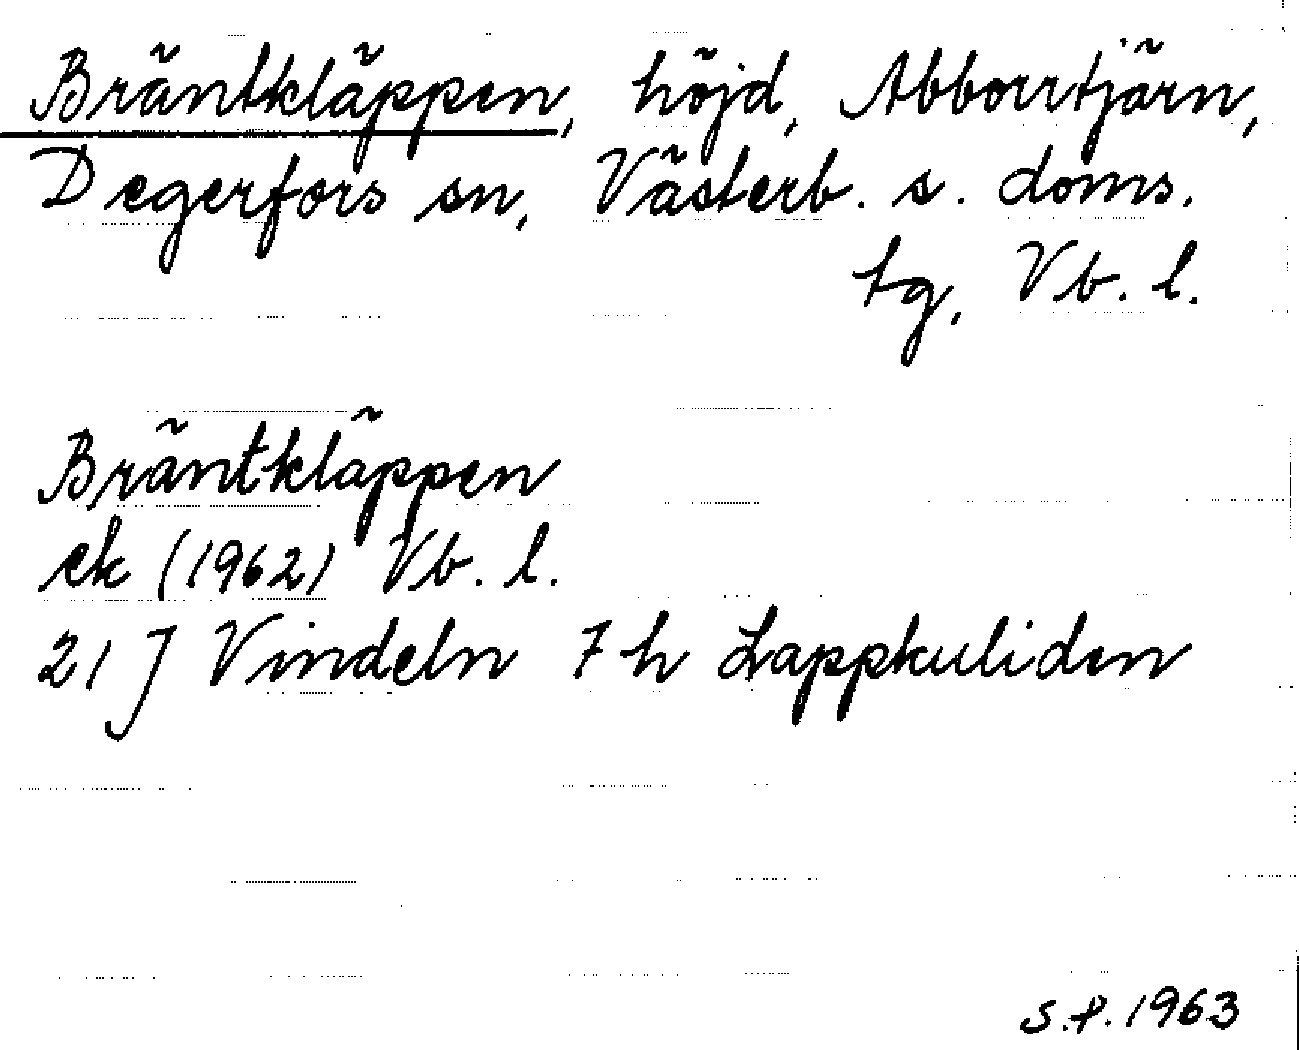 Bräntkläppen, höjd, Abborrtjärn,
Degerfors sn, Västerb. s. doms.
tg, Vb. l.
Bräntkläppen
ek (1962) Vb. l.
21 J Vindeln 7 h Lappkuliden
S.P. 1963